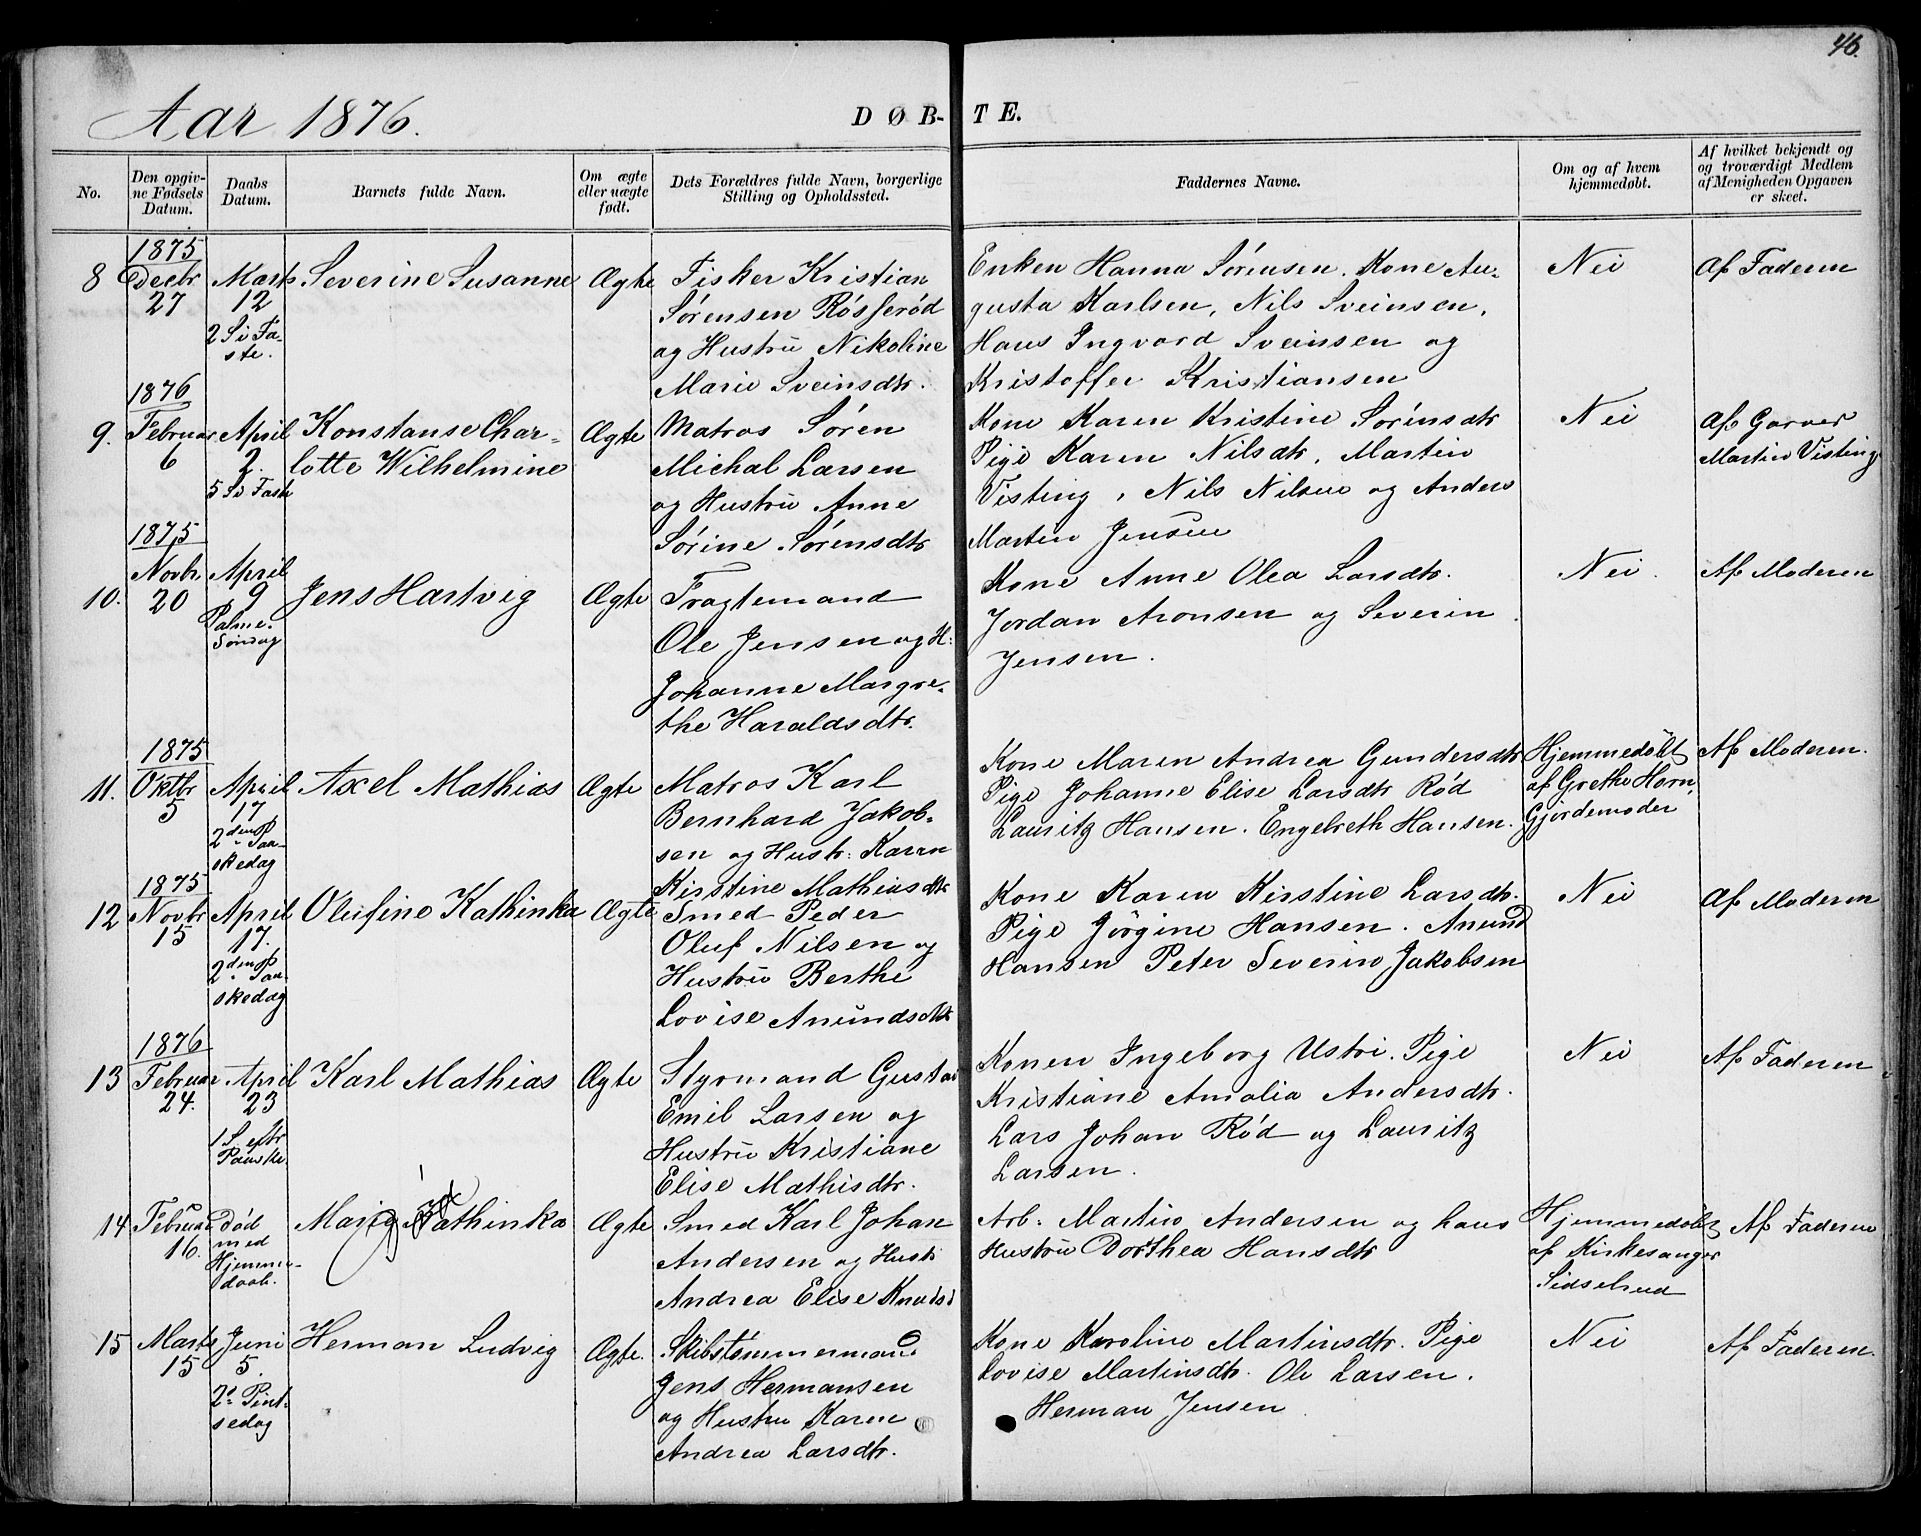 46.
Aar 1876.
DØB-TE.
No.
Den opgiv-
ne Fødsels
Datum.
Daabs
Datum.
Barnets fulde Navn.
Om ægte
eller uægte
født.
Dets Forældres fulde Navn, borgerlige
Stilling og Opholdssted.
Faddernes Navne.
Om og af hvem
hjemmedøbt.
Af hvilket bekjendt og
og troværdigt Medlem
af Menigheden Opgaven
er skeet.
8
1875
Decbr
27
Marts
12
2 Si Fa-
ste.
Severine Susanne
Ægte
Fisker Kristian
Sørensen Røsserød
og Hustru Nikoline
Marie Sveinsdtr.
Enken Hanna Sørensen. Kone Au-
gusta Karlsen, Nils Sveinsen,
Hans Ingvard Sveinsen og
Kristoffer Kristiansen
Nei
Af Faderen
9.
1876
Februar
6
April
2.
5 Si Fast
Konstanse Char-
lotte Wilhelmine
Ægte
Matros Søren
Michal Larsen
og Hustru Anne
Sørine Sørensdtr
Kone Karen Kristine Sørensdtr
Pige Karen Nilsdtr, Martin
Visting, Nils Nilsen og Anders
Martin Jensen
Nei
Af Garver
Martin Visting
10.
1875
Novbr
20
April
9
Palme-
Søndag
Jens Hartvig
Ægte
Fragtemand
Ole Jensen og H:
Johanne Margre-
the Haraldsdtr.
Kone Anne Olea Larsdtr.
Jordan Aronsen og Severin
Jensen.
Nei.
Af Moderen
11.
1875
Oktbr
5
April
17
2den Paa-
skedag
Axel Mathias
Ægte
Matros Karl
Bernhard Jakob-
sen og Hustr: Karen
Kirstine Mathiasdtr
Kone Maren Andrea Gundersdtr
Pige Johanne Elise Larsdtr Rød
Lauritz Hansen. Engebreth Hansen.
Hjemmedøbt
af Grethe Horn,
Gjordemoder
Af Moderen.
12
1875
Novbr
15
April
17.
2den Paa-
skedag
Olufine Kathinka
Ægte
Smed Peder
Oluf Nilsen og
Hustru Berthe
Lovise Anundsdtr
Kone Karen Kirstine Larsdtr.
Pige Jørgine Hansen. Anund
Hansen Peter Severin Jakobsen
Nei
Af Moderen
13
1876
Februar
24.
April
23
1 S eftr
Paaske.
Karl Mathias
Ægte
Styrmand Gustav
Emil Larsen og
Hustru Kristiane
Elise Mathisdtr.
Konen Ingeborg Ustri. Pige
Kristiane Amalia Andersdtr.
Lars Johan Rød og Lauritz
Larsen.
Nei
Af Faderen
14
Februar
16.
død
med
Hjemme-
daab.
Kathinka
Ægte
Smed Karl Johan
Andersen og Hustr
Andrea Elise Knudsd
Arb. Martin Andersen og hans
Hustru Dorthea Hansdtr
Hjemmedøbt
af Kirkesanger
Sidselrud
Af Faderen
15
Marts
15
Juni
5.
2d Pint-
sedag
Herman Ludvig
Ægte.
Skibstømmermand
Jens Hermansen
og Hustru Karen
Andrea Larsdtr.
Kone Karoline Martinsdtr. Pige
Lovise Martinsdtr. Ole Larsen.
Herman Jensen
Nei
Af Faderen.